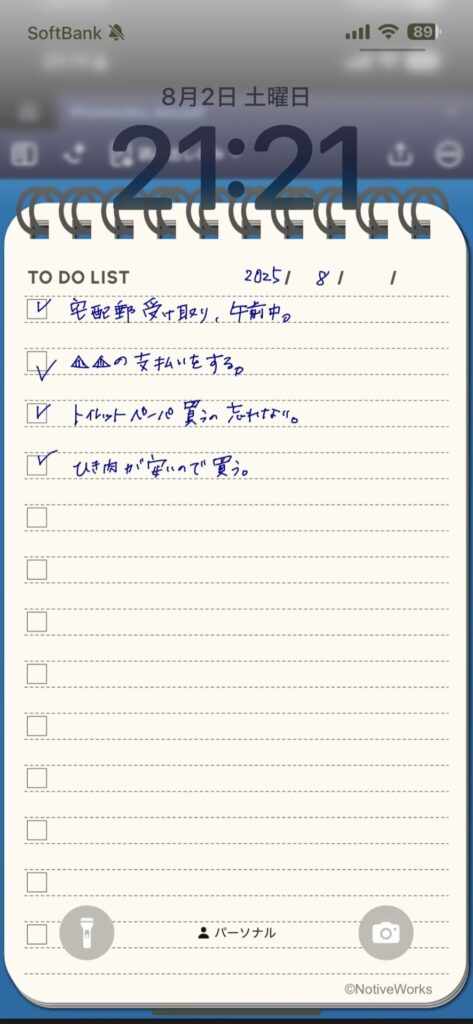 SoftBank 89
8月2日 土曜日
21:21
TO DO LIST 2025/ 8 / /
宅配郵受け取り、午前中。
の支払いをする。
トイレットペーパ買うの忘れない。
ひき肉が安いので買う。
パーソナル
©NotiveWorks